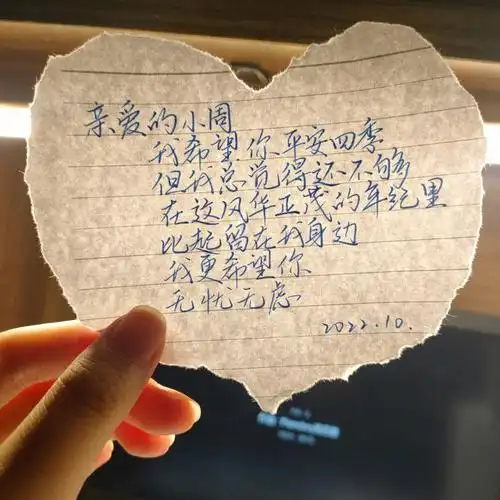 亲爱的小周
我希望你平安四季
但我总觉得还不够
在这风华正茂的年纪里
比起留在我身边
我更希望你
无忧无虑
2022.10.